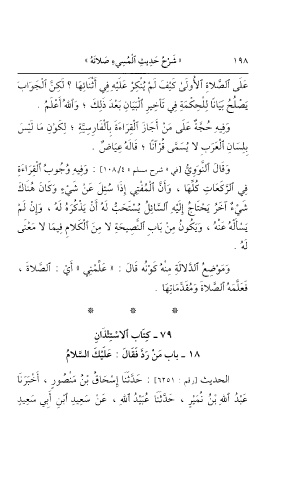 ١٩٨ « شَرْحُ حَدِيثِ الْمُسِيءِ صَلَاتَهُ »
عَلَى الصَّلَاةِ الْأُولَى كَيْفَ لَمْ يُنْكِرْ عَلَيْهِ فِي أَثْنَائِهَا ؟ لَكِنَّ الْجَوَابَ
يَصْلُحُ بَيَانًا لِلْحِكْمَةِ فِي تَأْخِيرِ الْبَيَانِ بَعْدَ ذَلِكَ ؛ وَاللهُ أَعْلَمُ .
وَفِيهِ حُجَّةٌ عَلَى مَنْ أَجَازَ الْقِرَاءَةَ بِالْفَارِسِيَّةِ ؛ لِكَوْنِ مَا لَيْسَ
بِلِسَانِ الْعَرَبِ لَا يُسَمَّى قُرْآنًا ؛ قَالَهُ عِيَاضٌ .
وَقَالَ النَّوَوِيُّ [في « شرح مسلم » ١٠٨/٤] : وَفِيهِ وُجُوبُ الْقِرَاءَةِ
فِي الرَّكَعَاتِ كُلِّهَا ، وَأَنَّ الْمُفْتِيَ إِذَا سُئِلَ عَنْ شَيْءٍ وَكَانَ هُنَاكَ
شَيْءٌ آخَرُ يَحْتَاجُ إِلَيْهِ السَّائِلُ يُسْتَحَبُّ لَهُ أَنْ يَذْكُرَهُ لَهُ ، وَإِنْ لَمْ
يَسْأَلْهُ عَنْهُ ، وَيَكُونُ مِنْ بَابِ النَّصِيحَةِ لَا مِنَ الْكَلَامِ فِيمَا لَا مَعْنَى
لَهُ .
وَمَوْضِعُ الدَّلَالَةِ مِنْهُ كَوْنُهُ قَالَ : « عَلِّمْنِي » أَيْ : الصَّلَاةَ ،
فَعَلَّمَهُ الصَّلَاةَ وَمُقَدِّمَاتِهَا .
* * *
٧٩ ـ كِتَاب الاسْتِئْذَانِ
١٨ ـ باب مَنْ رَدَّ فَقَالَ : عَلَيْكَ السَّلامُ
الحديث [رقم : ٦٢٥١] : حَدَّثَنَا إِسْحَاقُ بْنُ مَنْصُورٍ ، أَخْبَرَنَا
عَبْدُ اللهِ بْنُ نُمَيْرٍ ، حَدَّثَنَا عُبَيْدُ اللهِ ، عَنْ سَعِيدِ ابْنِ أَبِي سَعِيدٍ